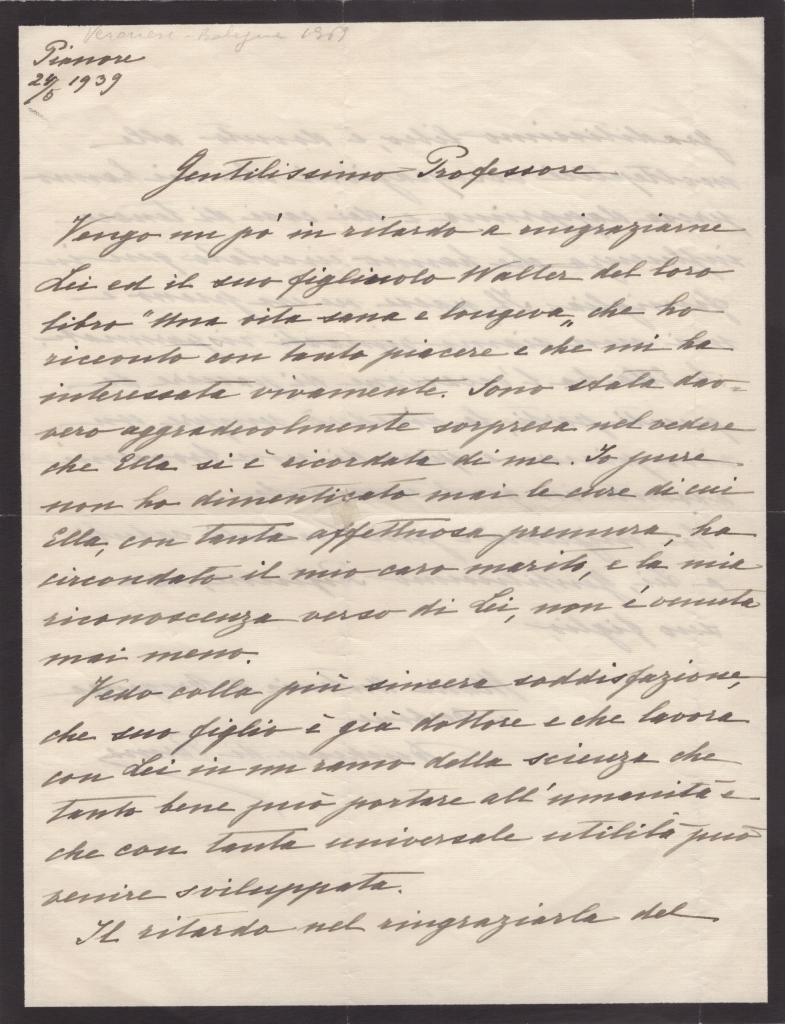 Veronesi - Bologna 1969
Pianore
24/5 1939
Gentilissimo Professore
Vengo un pó in ritardo a ringraziarne
Lei ed il suo figliuolo Walter del loro
libro "Una vita sana e longeva" che ho
ricevuto con tanto piacere e che mi ha
interessata vivamente. Sono stata dav-
vero aggradevolmente sorpresa nel vedere
che Ella si è ricordata di me. Io pure
non ho dimenticato mai le cure di cui
Ella, con tanta affettuosa premura, ha
circondato il mio caro marito, e la mia
riconoscenza verso di Lei, non é venuta
mai meno.
Vedo colla più sincera soddisfazione,
che suo figlio è già dottore e che lavora
con Lei in un ramo della scienza che
tanto bene può portare all'umanità e
che con tanta universale utilità può
venire sviluppata.
Il ritardo nel ringraziarla del